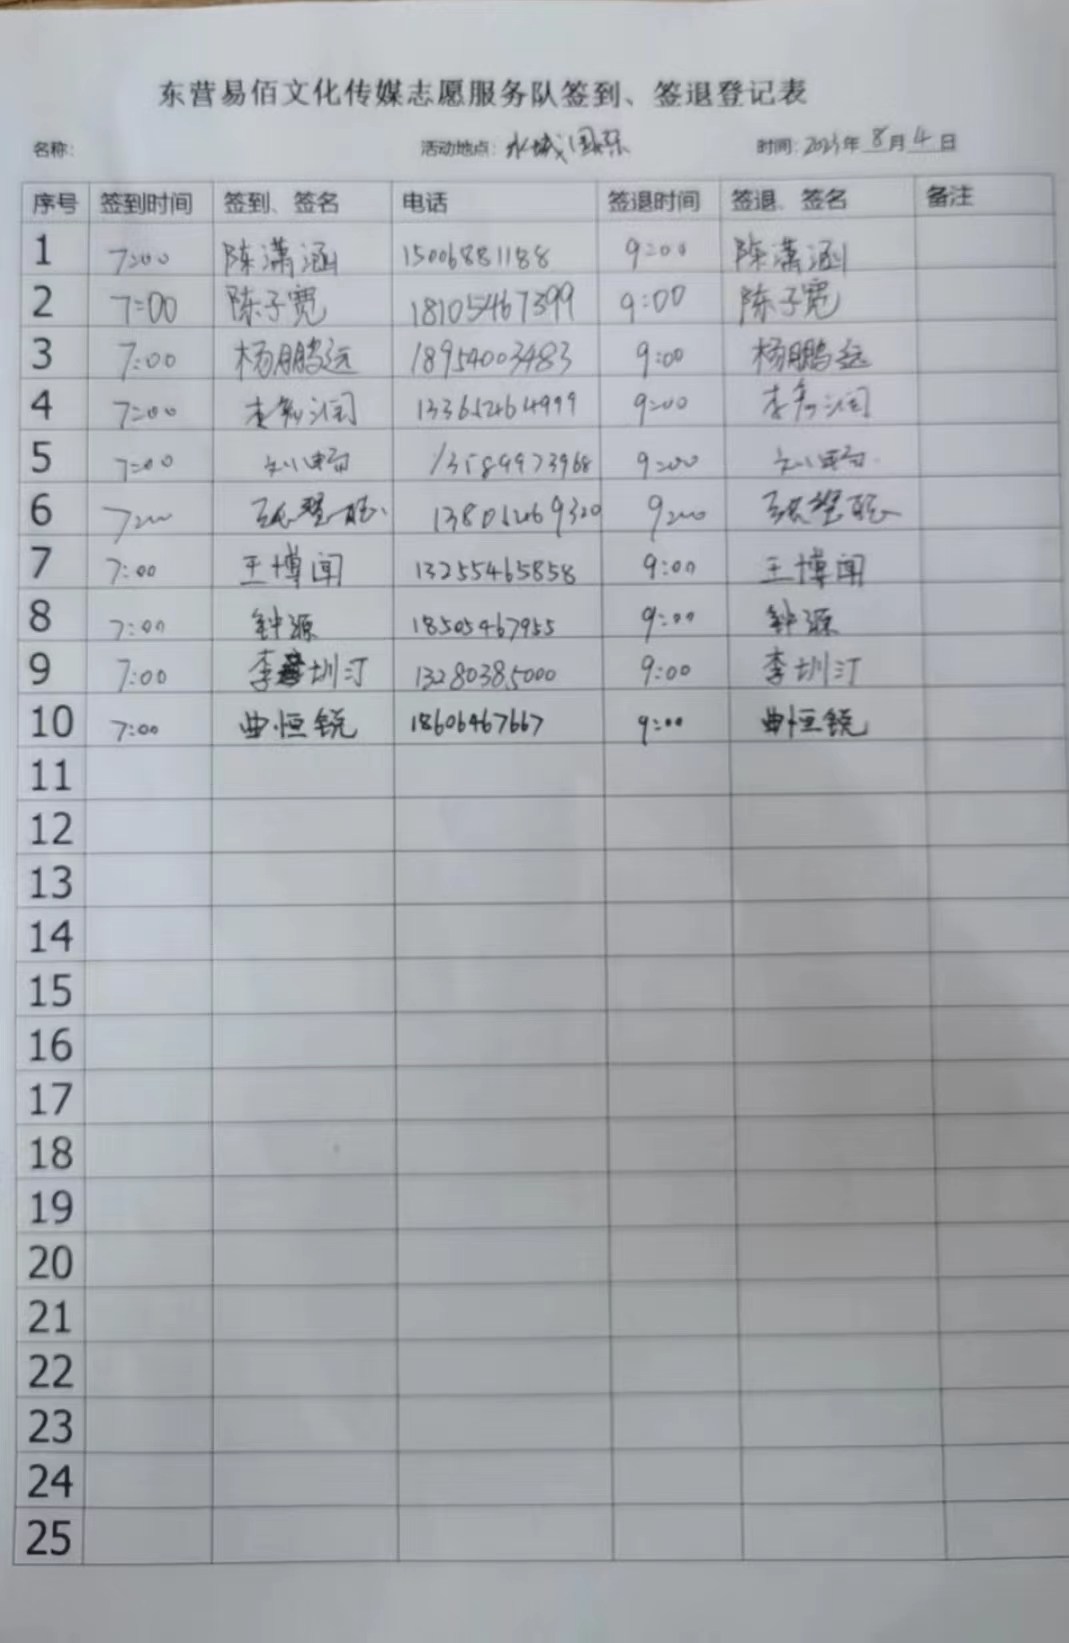 东营易佰文化传媒志愿服务队签到、签退登记表
名称： 活动地点：水城国际 时间：2023年 8月 4日
序号 签到时间 签到、签名 电话 签退时间 签退、签名 备注
1 7:00 陈潇涵 15006881188 9:00 陈潇涵
2 7:00 陈子宽 18105467399 9:00 陈子宽
3 7:00 杨鹏远 18954003483 9:00 杨鹏远
4 7:00 9:00
5 7:00 13589973968 9:00
6 7:00 9:00
7 7:00 王博闻 13255465858 9:00 王博闻
8 7:00 钟源 18505467955 9:00 钟源
9 7:00 李圳汀 13280385000 9:00 李圳汀
10 7:00 曲恒锐 18606467667 9:00 曲恒锐
11
12
13
14
15
16
17
18
19
20
21
22
23
24
25